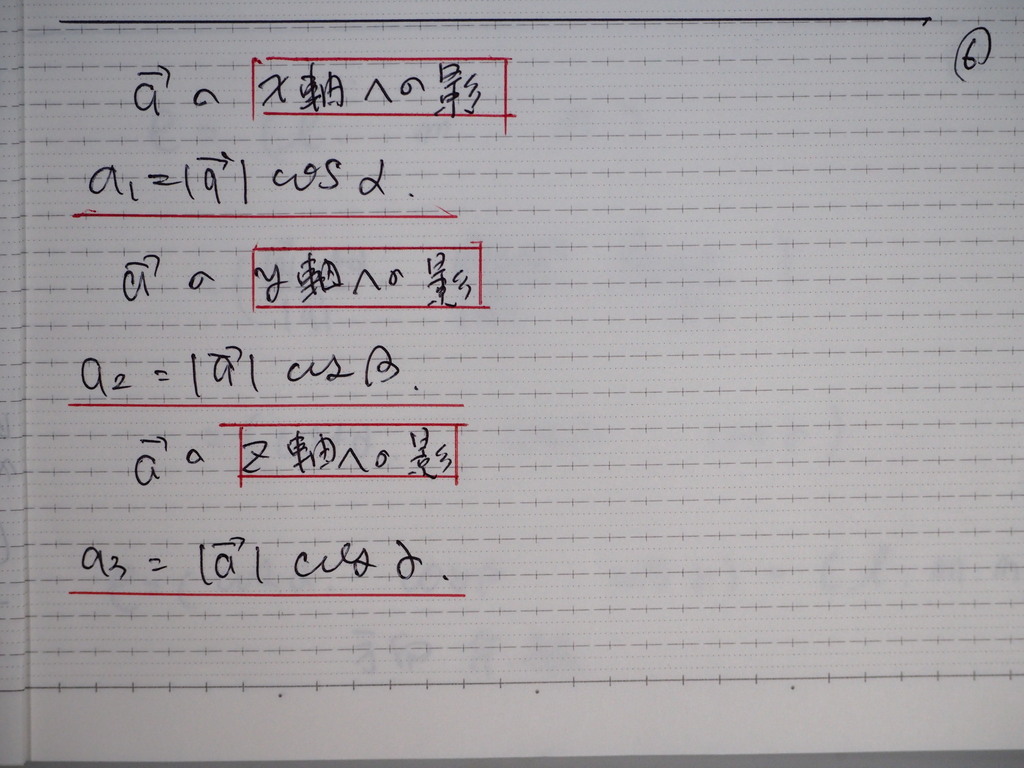 ⑥
a⃗ の x軸への影
a₁=|a⃗| cos α.
a⃗ の y軸への影
a₂ = |a⃗| cos β.
a⃗ の z軸への影
a₃ = |a⃗| cos γ.